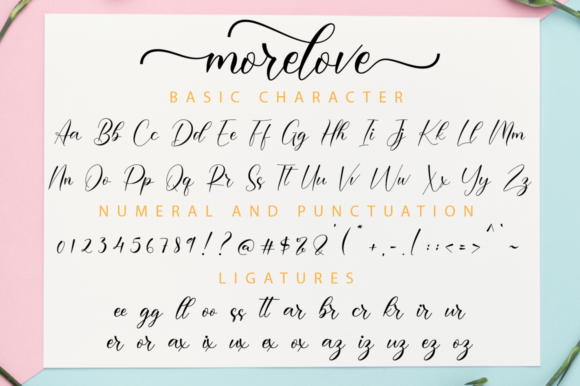 morelove
BASIC CHARACTER
Aa Bb Cc Dd Ee Ff Gg Hh Ii Jj Kk Ll Mm
Nn Oo Pp Qq Rr Ss Tt Uu Vv Ww Xx Yy Zz
NUMERAL AND PUNCTUATION
0123456789!?@#$%&'("+,-.(::<=>^`~
LIGATURES
ee gg ll oo ss tt ar br cr kr ir ur
er or ax ix ux ex ox az iz uz ez oz